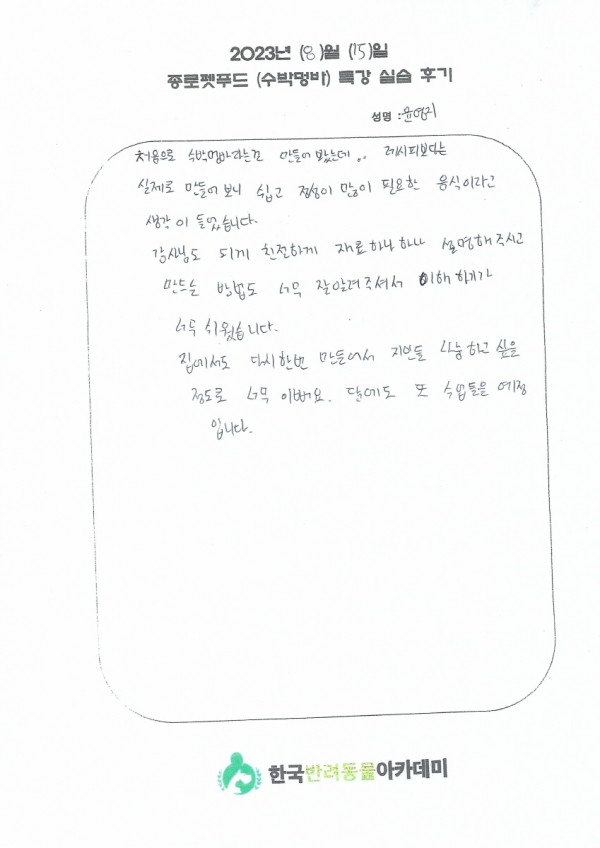 2023년 (8)월 (15)일
종로펫푸드 (수박멍바) 특강 실습 후기
성명 : 윤영지
처음으로 수박멍바라는걸 만들어 봤는데.. 레시피보다는
실제로 만들어 보니 쉽고 정성이 많이 필요한 음식이라고
생각이 들었습니다.
강사님도 되게 친절하게 재료하나하나 설명해주시고
만드는 방법도 너무 잘알려주셔서 이해하기가
너무 쉬웠습니다.
집에서도 다시한번 만들어서 지인들 나눔하고 싶을
정도로 너무 이뻐요. 담에도 또 수업들을 예정
입니다.
한국반려동물아카데미